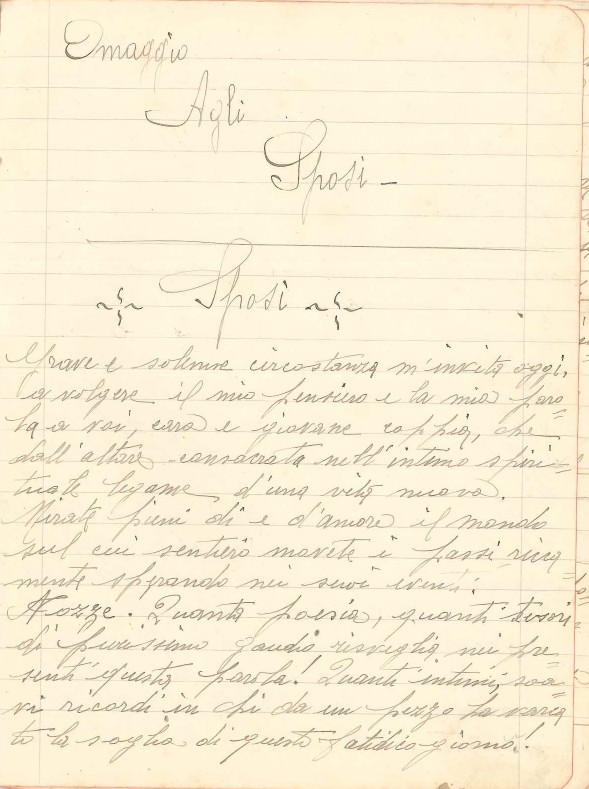 Omaggio
Agli
Sposi -
Sposi
Grave e solenne circostanza m'invita oggi,
a volgere il mio pensiero e la mia paro=
la a voi, cara e giovane coppia, che
dall'altare consacrata nell'intimo spiri=
tuale legame, d'una vita nuova.
Mirate pieni di e d'amore il mondo
sul cui sentiero movete i passi
mente sperando nei suoi eventi.
Nozze. Quanta poesia, quanti tesori
di purissimo gaudio risveglia nei pre=
senti questa parola! Quanti intimi, soa=
vi ricordi in chi da un pezzo ha varca
to la soglia di questo fatidico giorno!